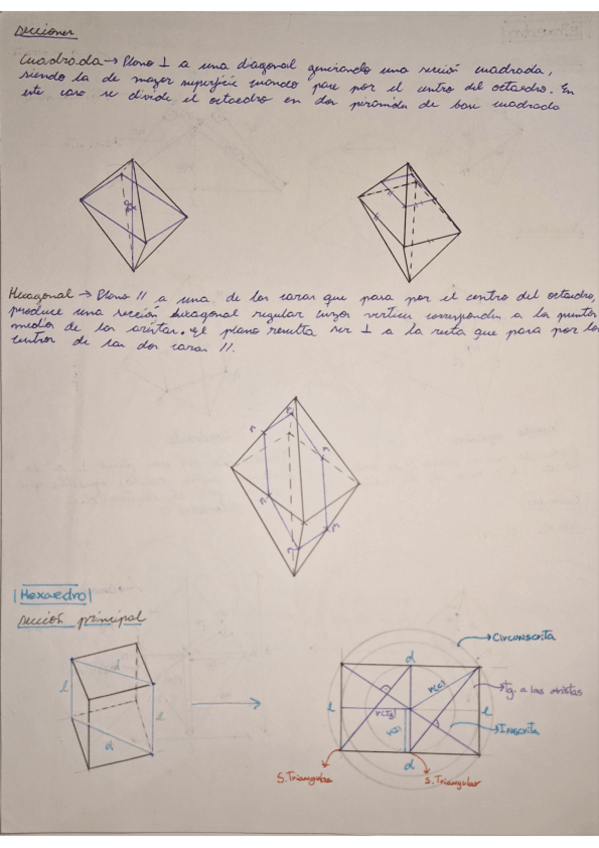 Secciones
Cuadrada → Plano ⊥ a una diagonal generando una sección cuadrada,
siendo la de mayor superficie cuando pase por el centro del octaedro. En
este caso se divide el octaedro en dos pirámides de base cuadrada
Hexagonal → Plano // a una de las caras que pasa por el centro del octaedro,
produce una sección hexagonal regular cuyos vértices corresponden a los puntos
medios de las aristas. El plano resulta ser ⊥ a la recta que pasa por los
centros de las dos caras //.
n
n
n
n
n
n
|Hexaedro|
Sección principal
d
l
l
d
→ Circunscrita
d
r(c)
→ tg. a las aristas
l
r(tg)
r(i)
l
→ Inscrita
d
S. Triangular
S. Triangular